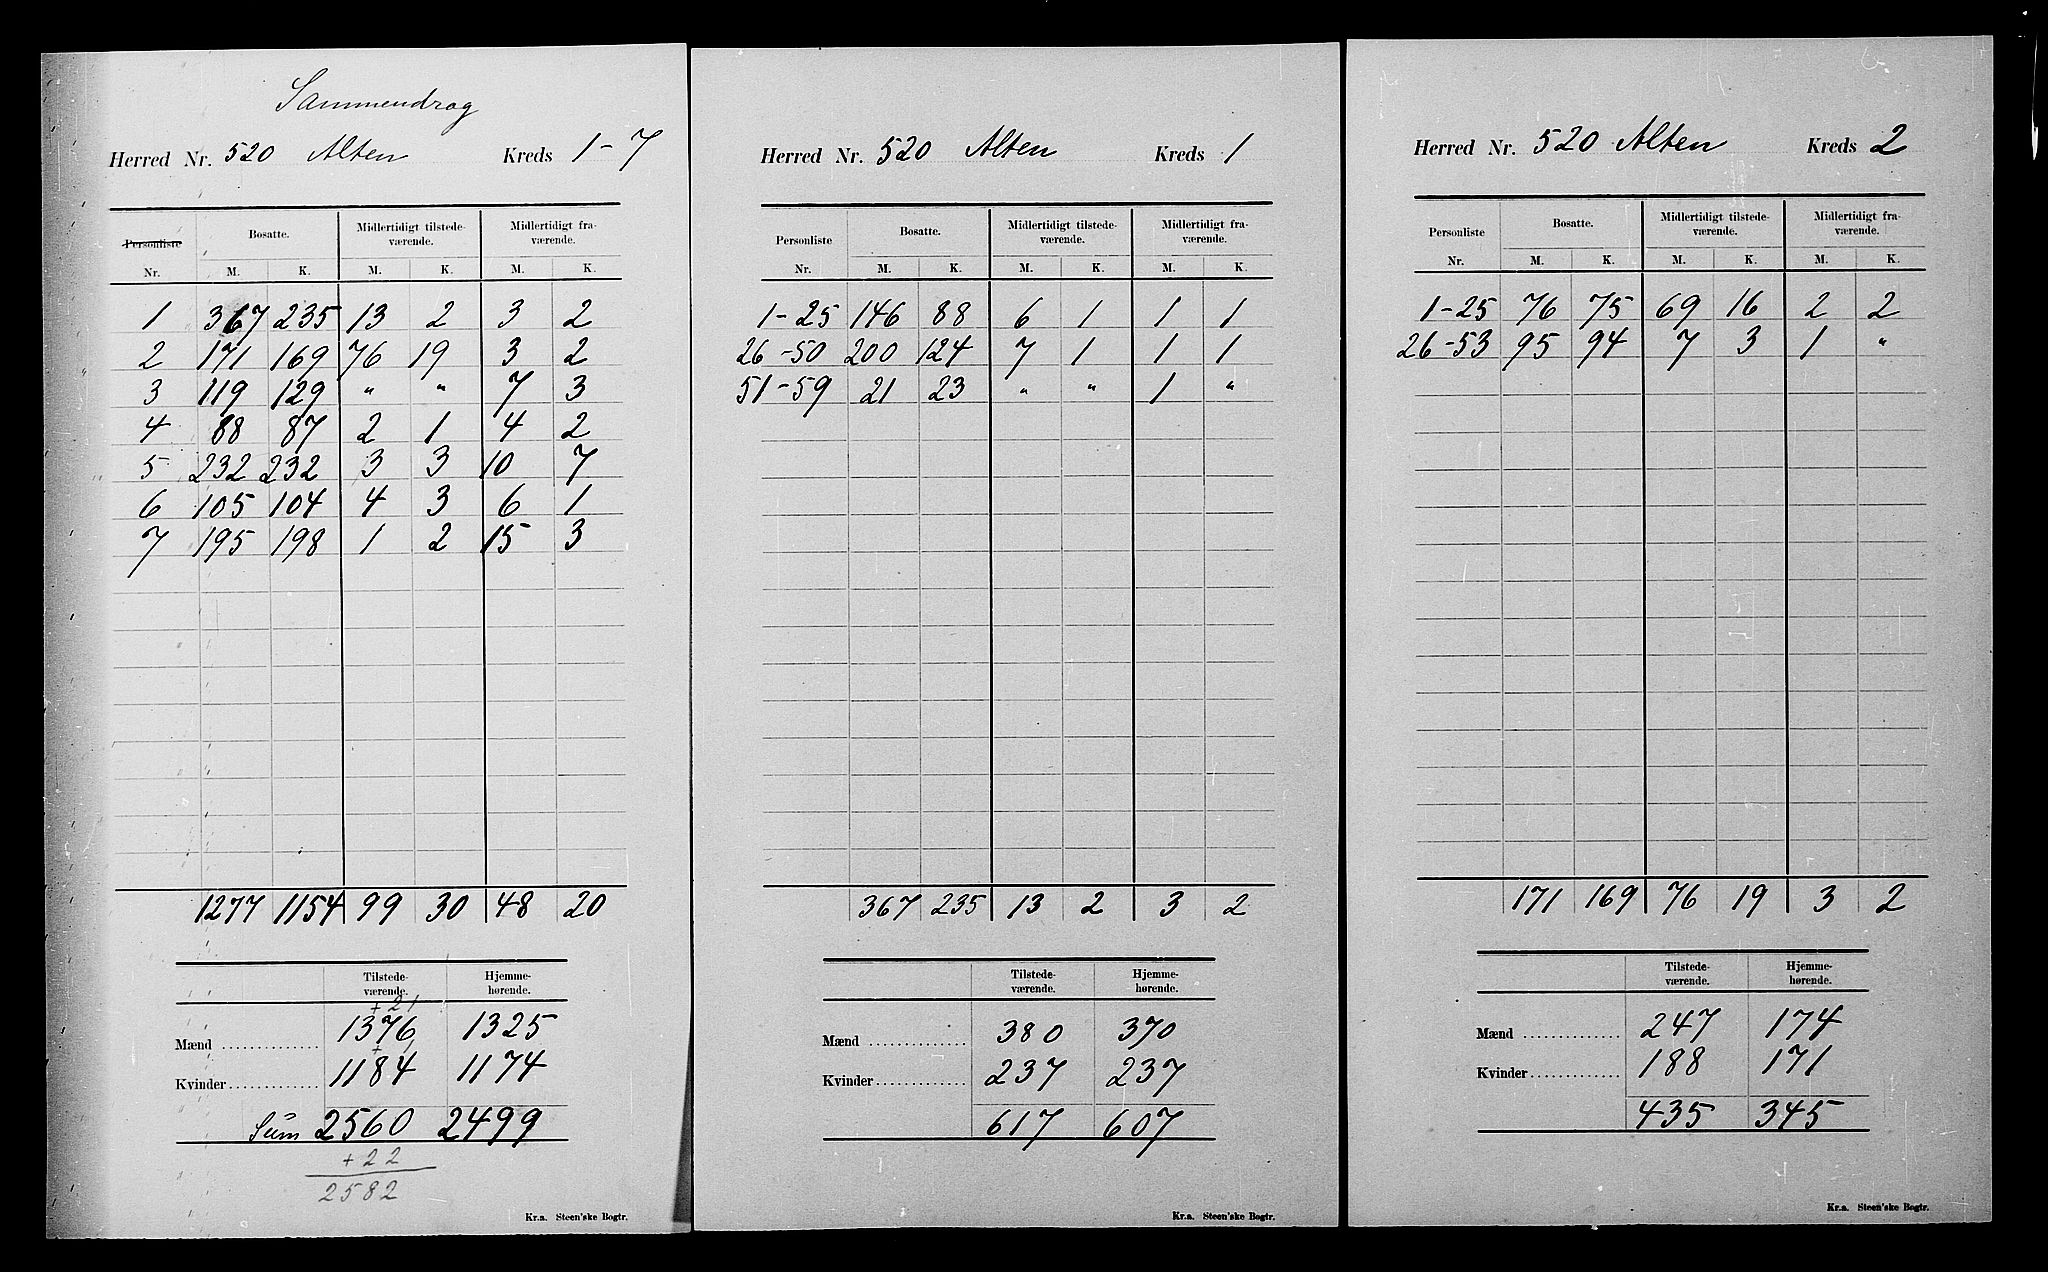 Sammendrag
Herred Nr. 520 Alten Kreds 1-7
Personliste Bosatte. Midlertidigt tilstede- Midlertidigt fra-
værende. værende.
Nr. M. K. M. K. M. K.
1 367 235 13 2 3 2
2 171 169 76 19 3 2
3 119 129 " " 7 3
4 88 87 2 1 4 2
5 232 232 3 3 10 7
6 105 104 4 3 6 1
7 195 198 1 2 15 3
1277 1154 99 30 48 20
Tilstede- Hjemme-
værende. hørende.
+21
Mænd 1376 1325
+1
Kvinder 1184 1174
Sum 2560 2499
+22
2582
Kr.a. Steen'ske Bogtr.
Herred Nr. 520 Alten Kreds 1
Personliste Bosatte. Midlertidigt tilstede- Midlertidigt fra-
værende. værende.
Nr. M. K. M. K. M. K.
1-25 146 88 6 1 1 1
26-50 200 124 7 1 1 1
51-59 21 23 " " 1 "
367 235 13 2 3 2
Tilstede- Hjemme-
værende. hørende.
Mænd 380 370
Kvinder 237 237
617 607
Kr.a. Steen'ske Bogtr.
Herred Nr. 520 Alten Kreds 2
Personliste Bosatte. Midlertidigt tilstede- Midlertidigt fra-
værende. værende.
Nr. M. K. M. K. M. K.
1-25 76 75 69 16 2 2
26-53 95 94 7 3 1 "
171 169 76 19 3 2
Tilstede- Hjemme-
værende. hørende.
Mænd 247 174
Kvinder 188 171
435 345
Kr.a. Steen'ske Bogtr.